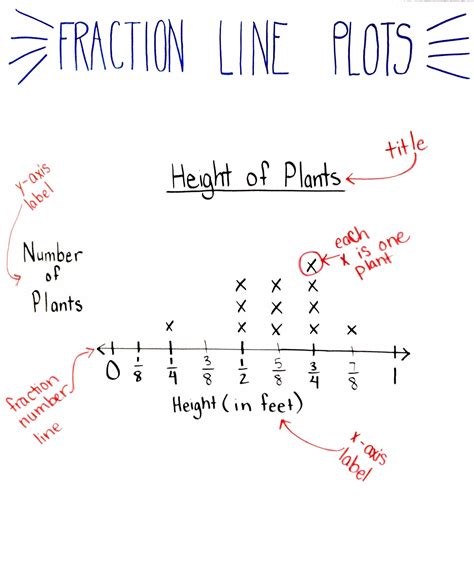 FRACTION LINE PLOTS
title
Height of Plants
y-axis
label
each
x is one
plant
Number
of
Plants
x
x x x
x x x
x x x x x
0 1/8 1/4 3/8 1/2 5/8 3/4 7/8 1
Height (in feet)
fraction
number
line
x-axis
label